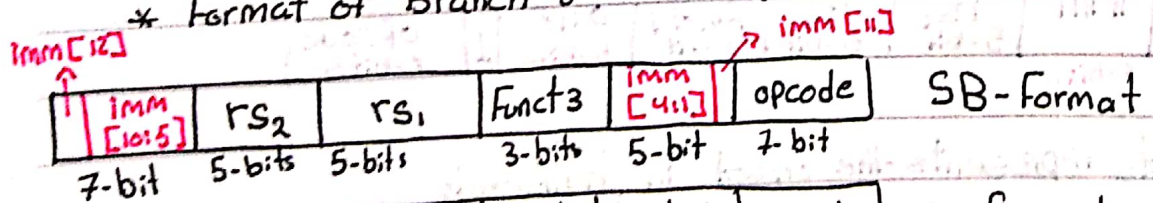 * Format of Branch
imm[12]
imm[11]
imm [10:5] rs2 rs1 Funct3 imm [4:1] opcode SB-Format
7-bit 5-bits 5-bits 3-bits 5-bit 7-bit